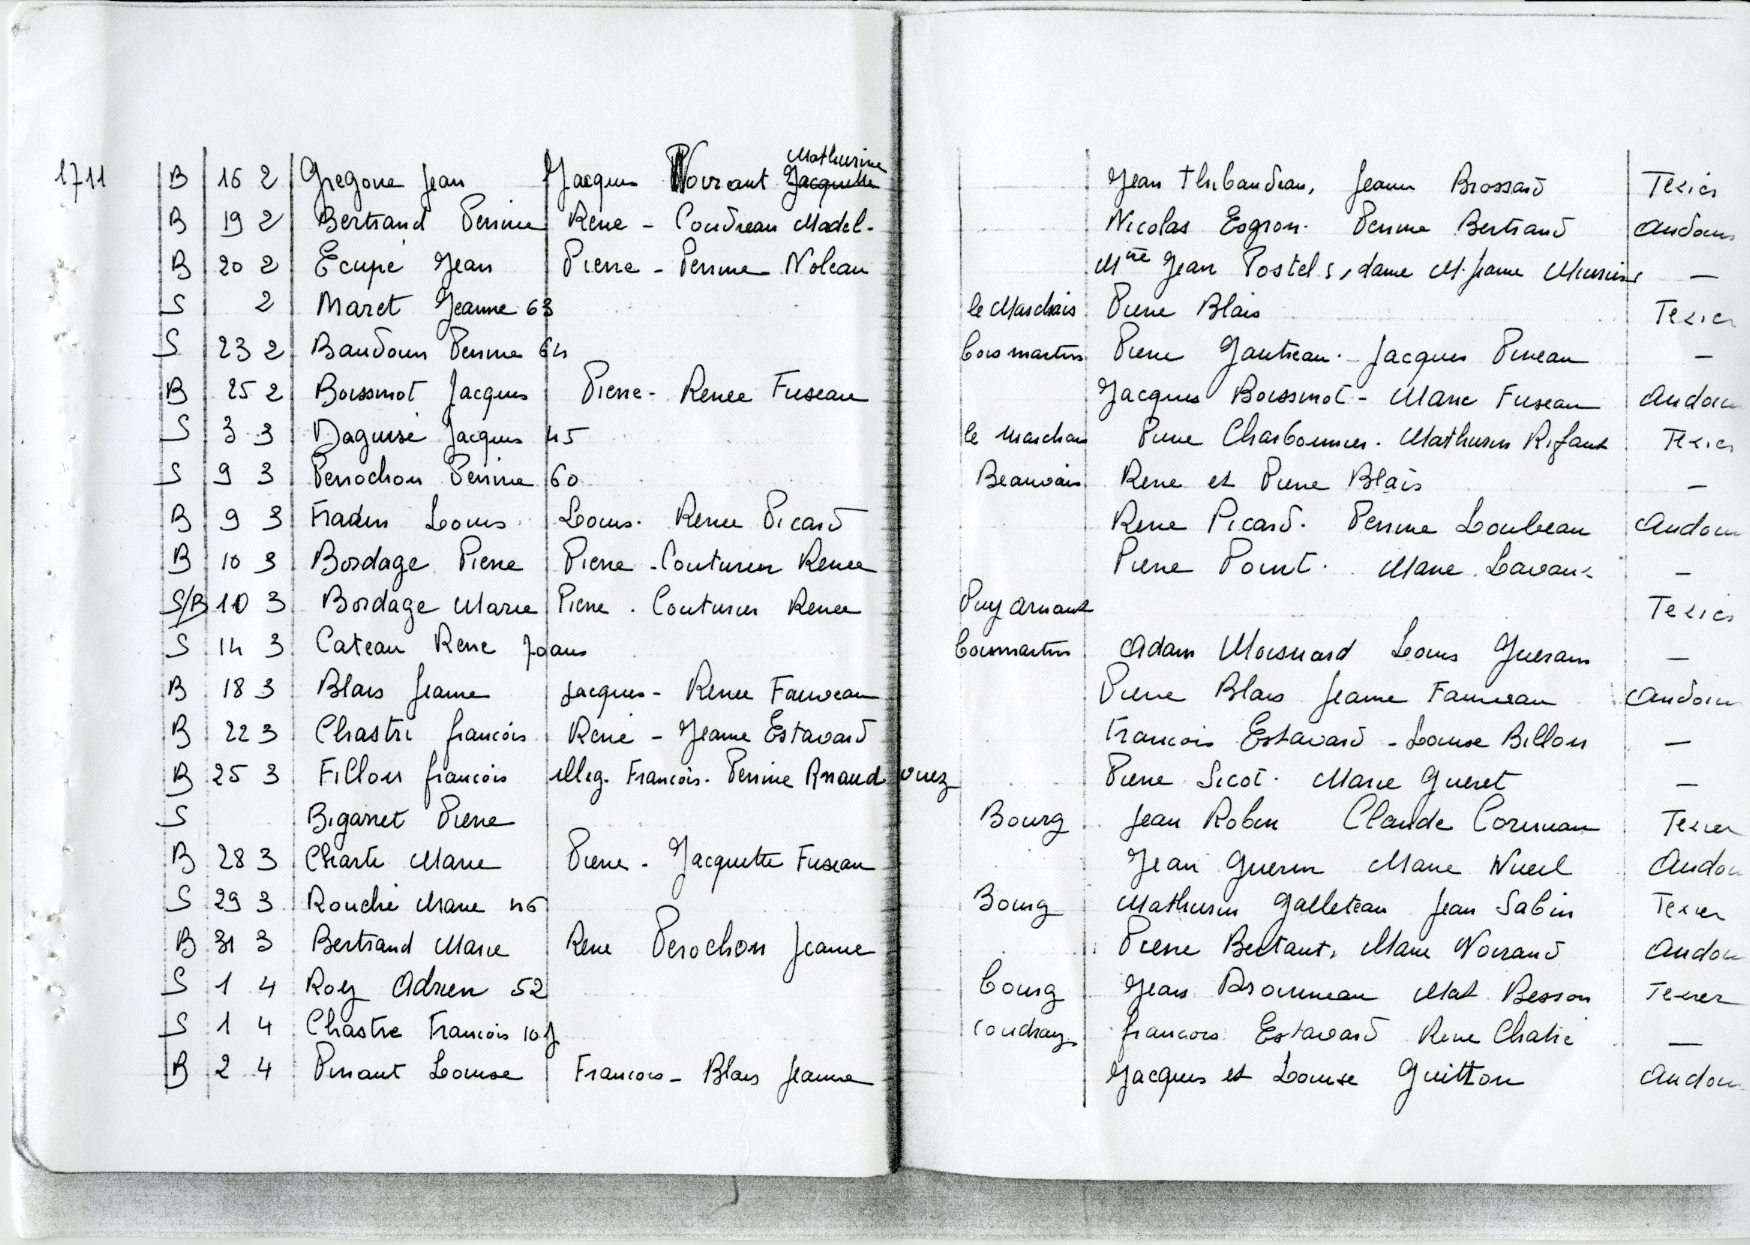 1711 B 16 2 Gregoire Jean Jacques Noirant Mathurine Jacquette Jean Thibaudeau, Jeanne Brossard Texier
B 19 2 Bertrand Perrine René - Coudreau Madel. Nicolas Eogron. Perrine Bertrand Audouin
B 20 2 Ecupé Jean Pierre - Perrine Noleau Jean Postel dame M. Jeanne —
S 2 Maret Jeanne 63 le Marchais Pierre Blais Texier
S 23 2 Baudouin Perrine 64 boismartin Pierre Gautreau. Jacques Pineau —
B 25 2 Boissinot Jacques Pierre - Renee Fuseau Jacques Boissinot - Marie Fuseau Audouin
S 3 3 Daguisé Jacques 45 le Marchais Pierre Charbonnier. Mathurin Rifault Texier
S 9 3 Perrochon Perrine 60 Beauvais Rene et Pierre Blais —
B 9 3 Fradin Louis Louis. Renee Picard Rene Picard. Perrine Loubeau Audouin
B 10 3 Bordage Pierre Pierre - Couturier Renee Pierre Point. Marie Lavaux —
S/B 10 3 Bordage Marie Pierre. Couturier Renee Puy Arnault Texier
S 14 3 Cateau Rene 70 ans boismartin Adam Moisnard Louis Guerain —
B 18 3 Blais Jeanne Jacques - Renee Fauveau Pierre Blais Jeanne Fauveau Audouin
B 22 3 Chastri françois René - Jeanne Estavard Francois Estavard - Louise Billon —
B 25 3 Fillon françois illeg. Francois. Perrine Arnaud Pierre Sicot. Marie Gueret —
S Bigarret Pierre Bourg Jean Robin Claude Texier
B 28 3 Charte Marie Pierre - Jacquette Fuseau Jean Guerin Marie Nueil Audouin
S 29 3 Rouché Marie 46 Bourg Mathurin Galleteau Jean Sabin Texier
B 31 3 Bertrand Marie Rene Perochon Jeanne Pierre Bertaut, Marie Noirand Audouin
S 1 4 Roy Adrien 52 bourg Jean Mat Besson Texier
S 1 4 Chastre Francois 10 j coudray francois Estavard Rene Chatré —
B 2 4 Pinaut Louise Francois - Blais Jeanne Jacques et Louise Guitton Audouin